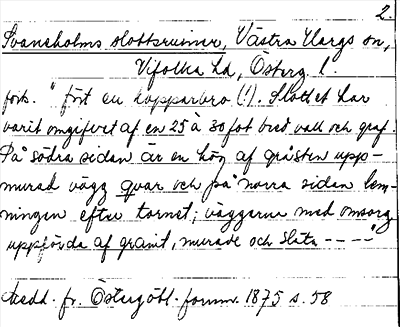 2.
Svansholms slottsruiner, Västra Hargs sn,
Vifolka hd, Österg. l.
forts. "fört en kopparbro (!). Slottet har
varit omgifvet af en 25 à 30 fot bred vall och graf.
På södra sidan är en hög af gråsten upp-
murad vägg qvar och på norra sidan lem-
ningen efter tornet; väggarna med omsorg
uppförda af granit, murade och släta - - - -"
Medd. fr. Östergötl. fornm. 1875 s. 58